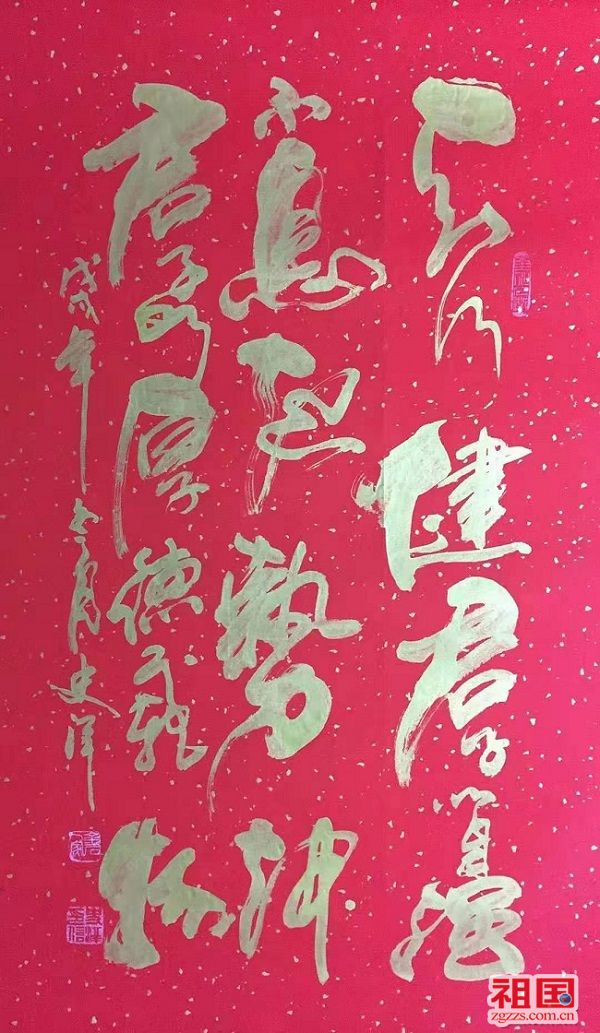 天行健君子以自强
不息地勢坤
君子以厚德載物
戌年 月史洋
祖国
zgzzs.com.cn